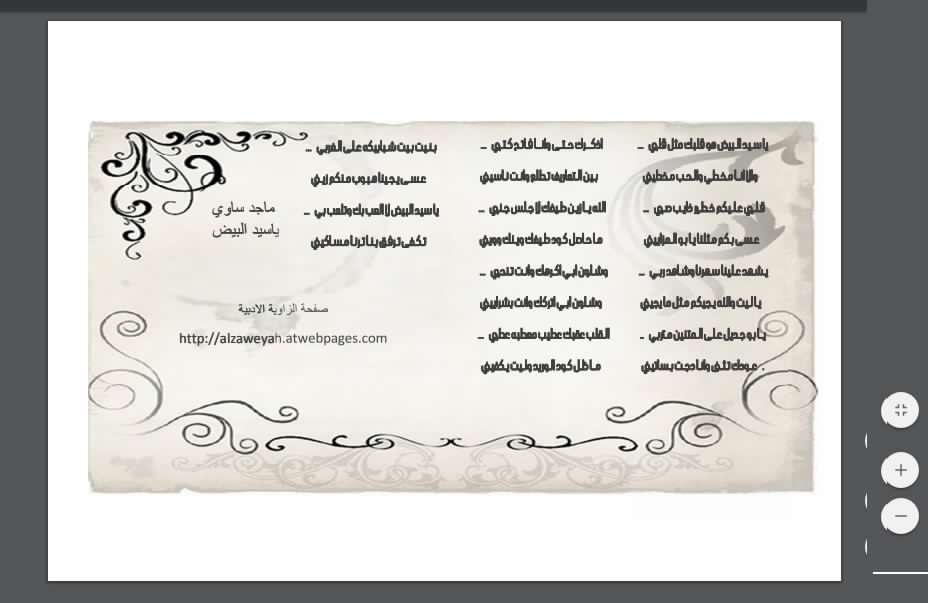 ياسيد البيض هو قلبك مثل قلبي ...
والا انا مخطي والحب مخطيني
قلبي عليكم خطير غايب صبي ...
عسى بكم مثلنا يا بو المزايين
يشهد علينا سهرنا وشاهد ربي ...
ياليت والله يجيكم مثل مايجيني
يا بو جديل على المتنين متربي ..
. عودك تثنى وانا دجت بساتيني
اذكرك حتى وانا فاتح كتبي ...
بين التعاريف تطلع وانت ناسيني
الله يازين طيفك لا جلس جنبي ...
ما حاصل كود طيفك وينك وويني
وشلون ابي اكرهك وانت تنحبي ...
وشلون ابي اتركك وانت بشراييني
القلب عقبك عطيب معطيه عطبي ...
ماظل كود الوريد وليت يكفيني
بنيت بيت شبابيكه على الغربي ...
عسى يجينا هبوب منكم زيني
ياسيد البيض لا العب بك وتلعب بي ...
تكفى ترفق بنا ترنا مساكيني
ماجد ساوي
ياسيد البيض
صفحة الزاوية الادبية
http://alzaweyah.atwebpages.com